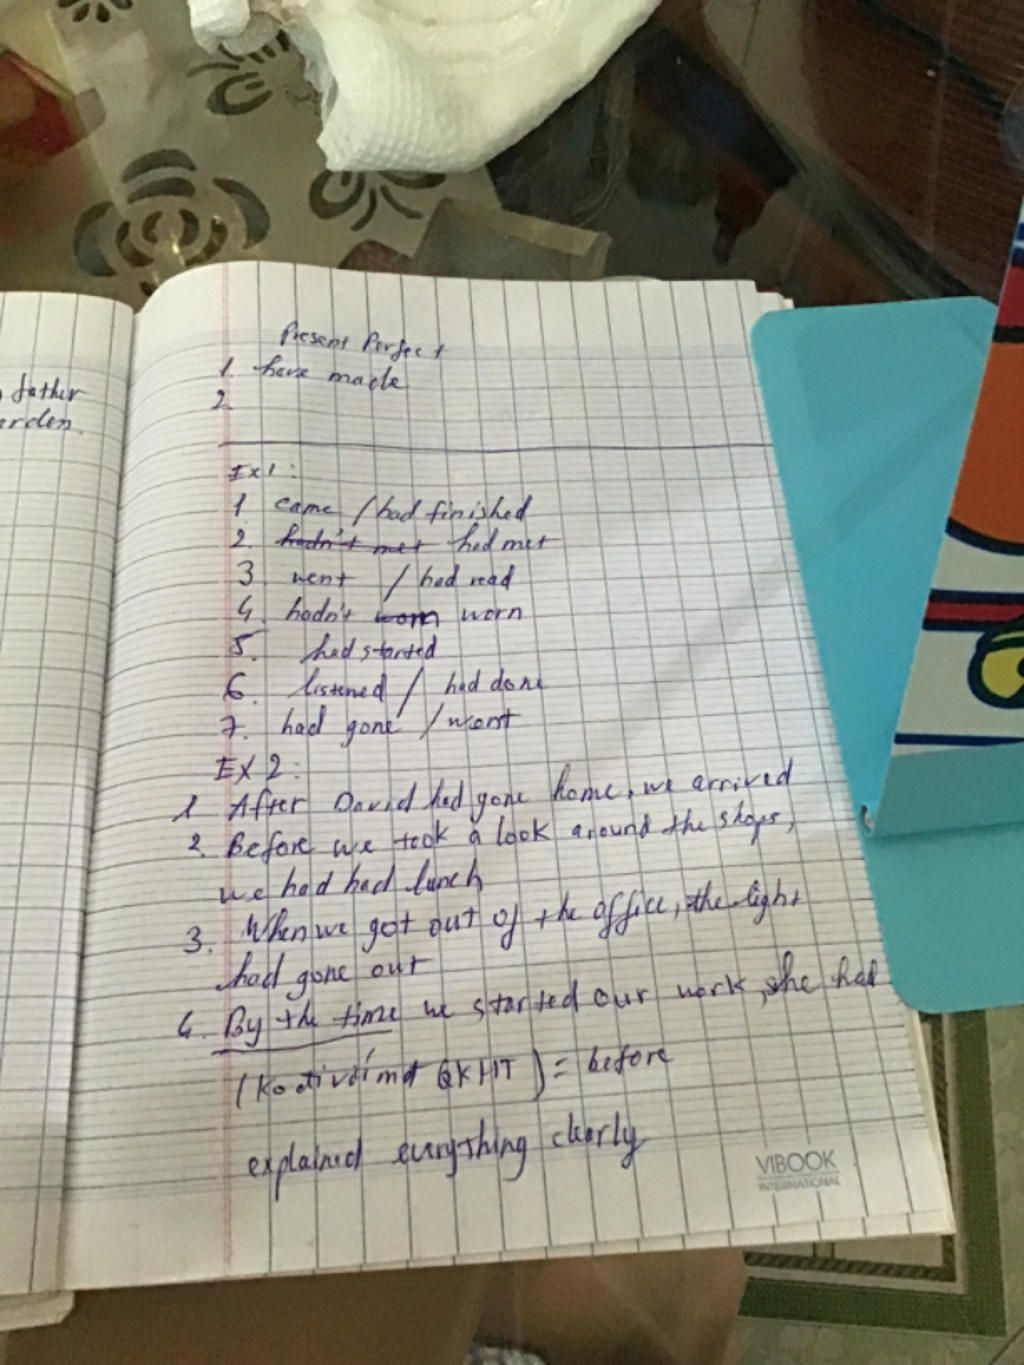 father
arden.
Present Perfect
1. have made
2.
Ex1:
1 came / had finished
2. hadn't met had met
3 went / had read
4. hadn't worn worn
5. had started
6. listened / had done
7. had gone / went
EX 2:
1 After David had gone home, we arrived
2. Before we took a look around the shops,
we had had lunch
3. When we got out of the office, the light
had gone out
4. By the time we started our work, she had
(Ko đi với mđ QKHT) = before
explained everything clearly
VIBOOK
INTERNATIONAL